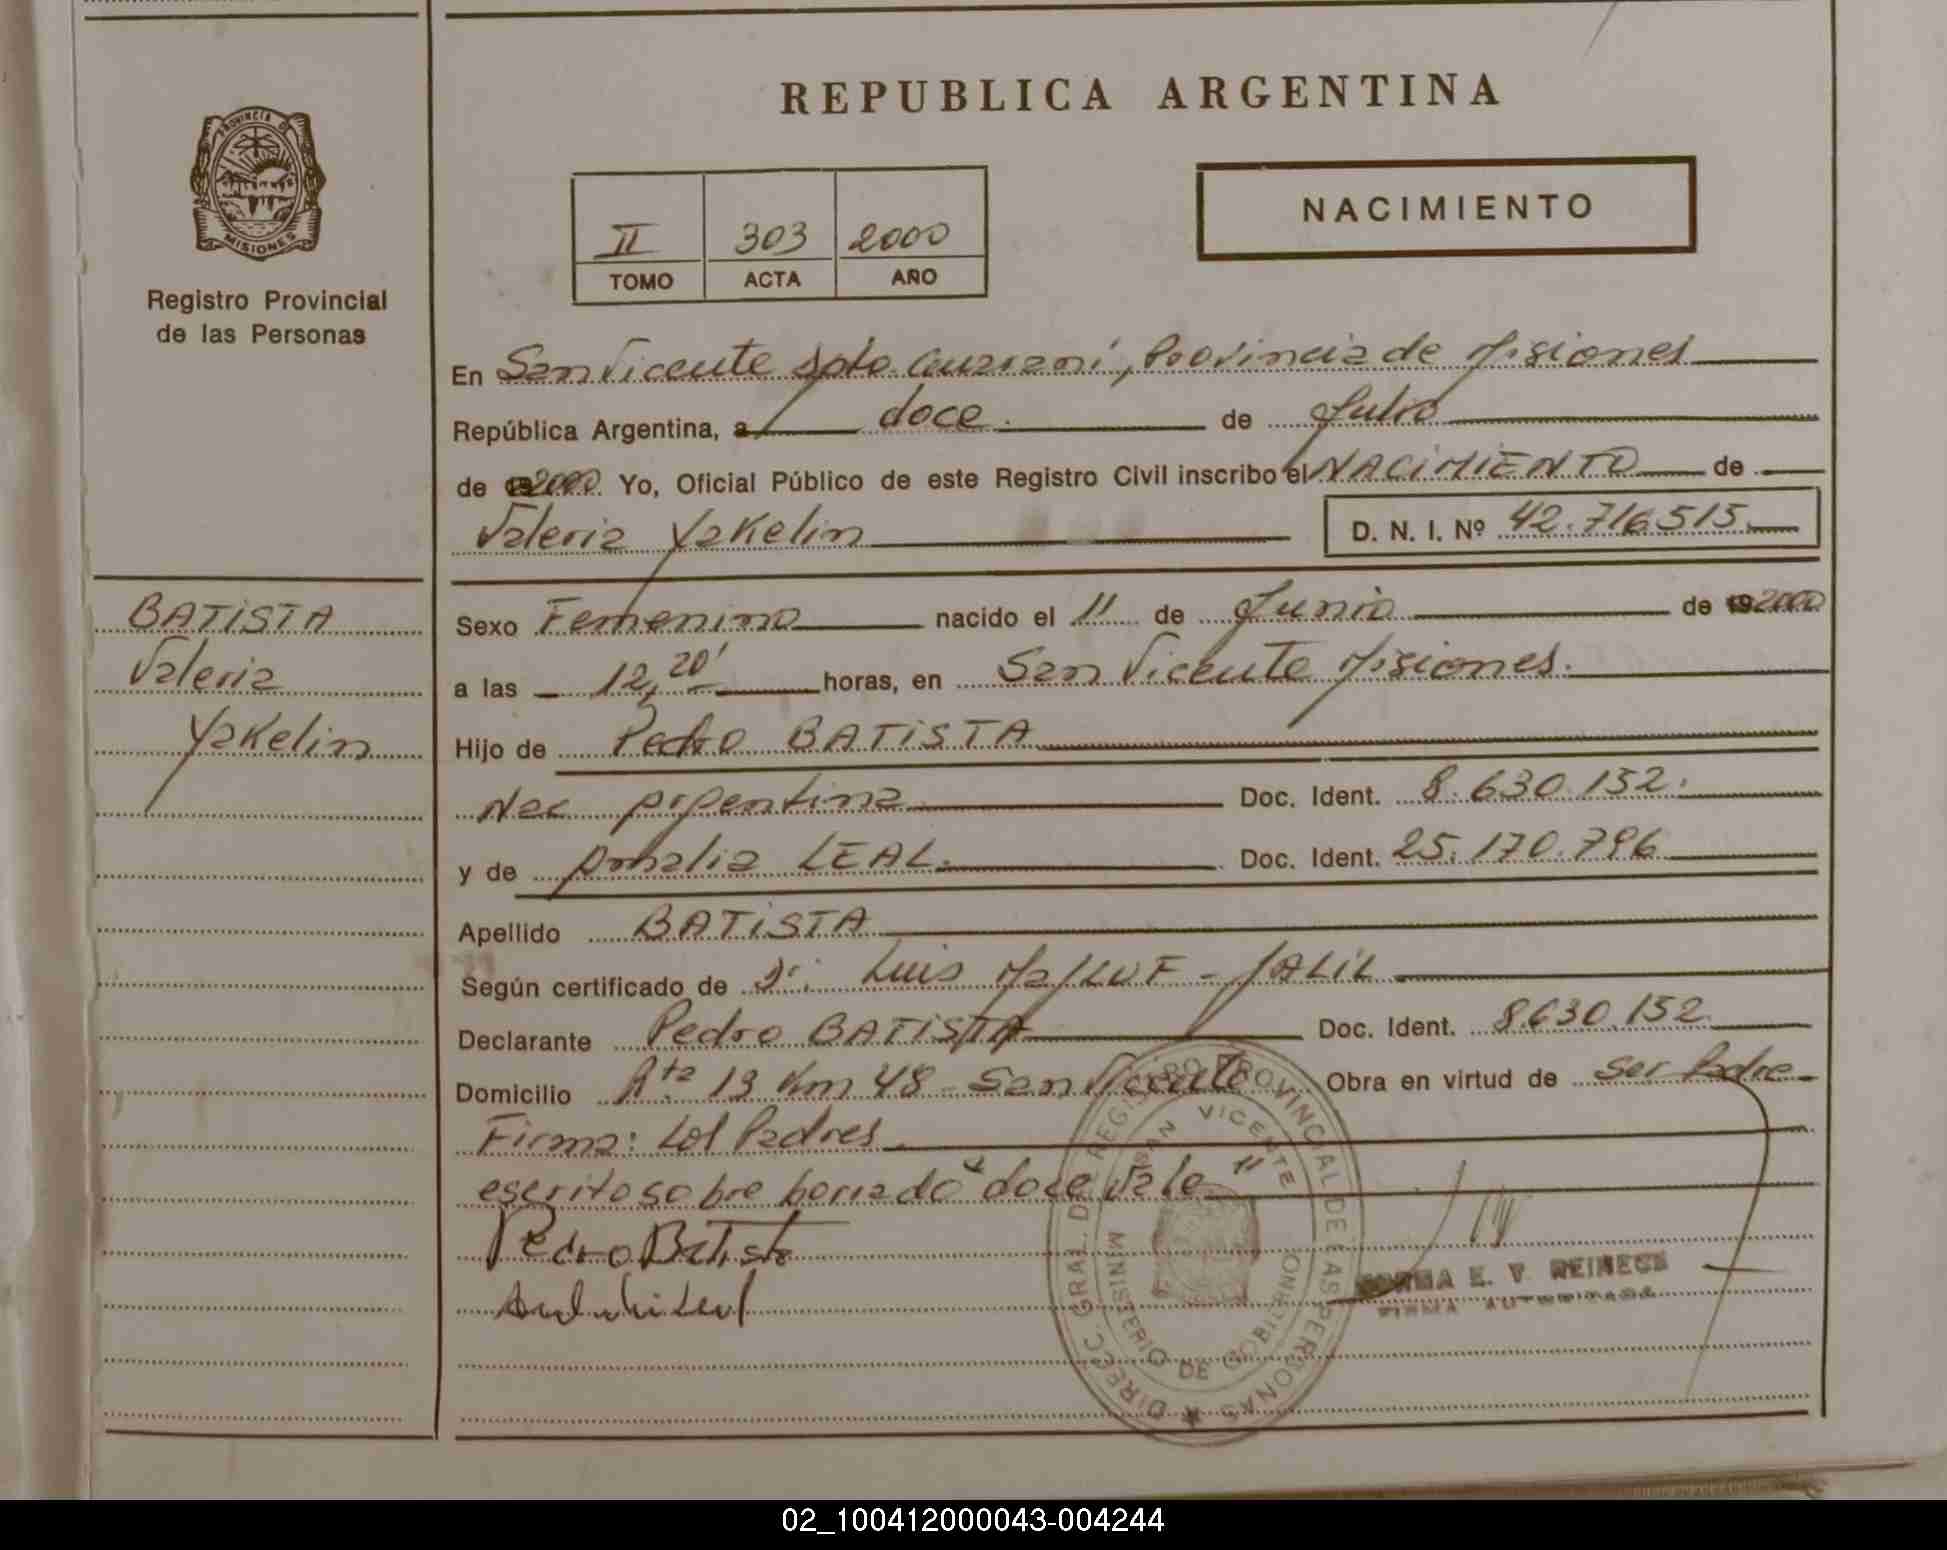 PROVINCIA DE
MISIONES
Registro Provincial
de las Personas
BATISTA
Valeria
Yakelin
REPUBLICA ARGENTINA
II 303 2000
TOMO ACTA AÑO
NACIMIENTO
En San Vicente Dpto. Guaraní, Provincia de Misiones
República Argentina, a doce de Julio
de 2000 Yo, Oficial Público de este Registro Civil inscribo el NACIMIENTO de
Valeria Yakelin D. N. I. Nº 42.716.515
Sexo Femenino nacido el 11 de Junio de 2000
a las 12,20' horas, en San Vicente Misiones.
Hijo de Pedro BATISTA
Nac Argentina Doc. Ident. 8.630.152.
y de Analia LEAL. Doc. Ident. 25.170.796
Apellido BATISTA
Según certificado de Dr. Luis MaLUF - JALIL
Declarante Pedro BATISTA Doc. Ident. 8.630.152
Domicilio Rta 13 Km 48 - San Vicente Obra en virtud de Ser Padre
Firma: Los Padres
escrito sobre borrado "doce Vale"
Pedro Batista
DIRECC. GRAL. DE REGISTRO PROVINCIAL DE LAS PERSONAS
SAN VICENTE
MINISTERIO DE GOBIERNO
NORMA E. V. REINECK
FIRMA AUTORIZADA
02_100412000043-004244